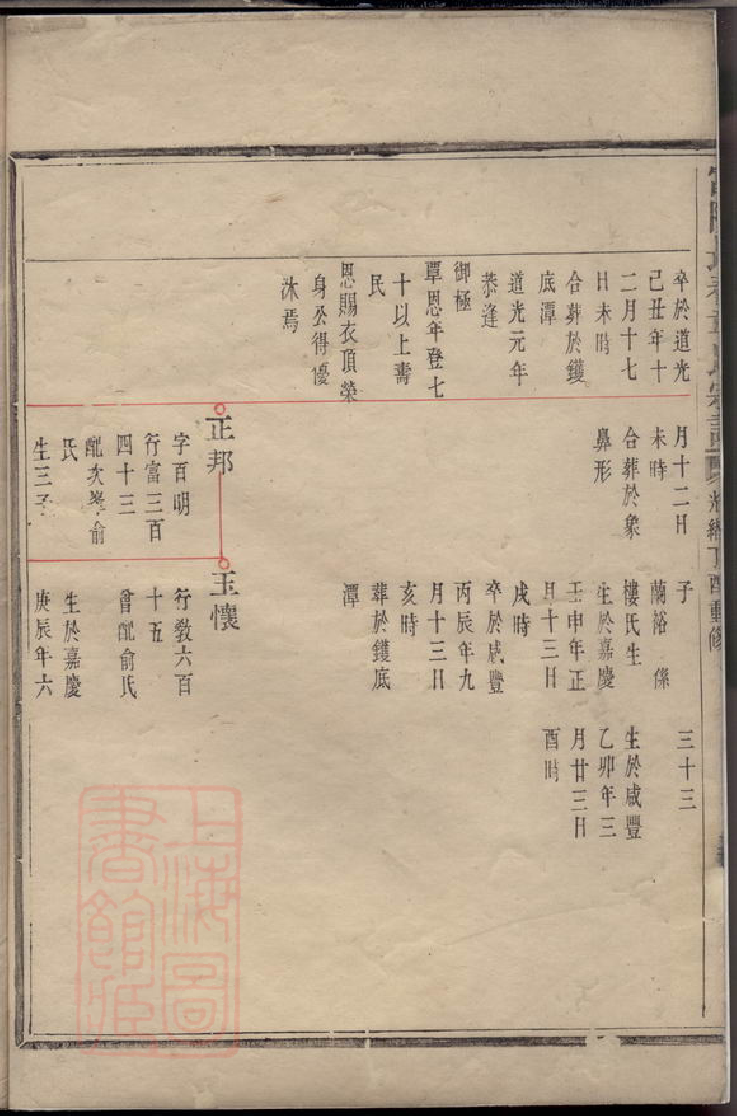 卒於道光
己丑年十
二月十七
日未時
合葬於鑊
底潭
道光元年
恭逢
御極
覃恩年登七
十以上壽
民
恩賜衣頂榮
身公得優
沐焉
月十二日
未時
合葬於象
鼻形
正邦
字百明
行富三百
四十三
配次峯俞
氏
生三子
子
蘭裕 係
樓氏生
生於嘉慶
壬申年正
月十三日
戌時
卒於咸豐
丙辰年九
月十三日
亥時
葬於鑊底
潭
玉懷
行教六百
十五
曾配俞氏
生於嘉慶
庚辰年六
三十三
生於咸豐
乙卯年三
月廿三日
酉時
光緒丁酉重修
上海圖
書館藏